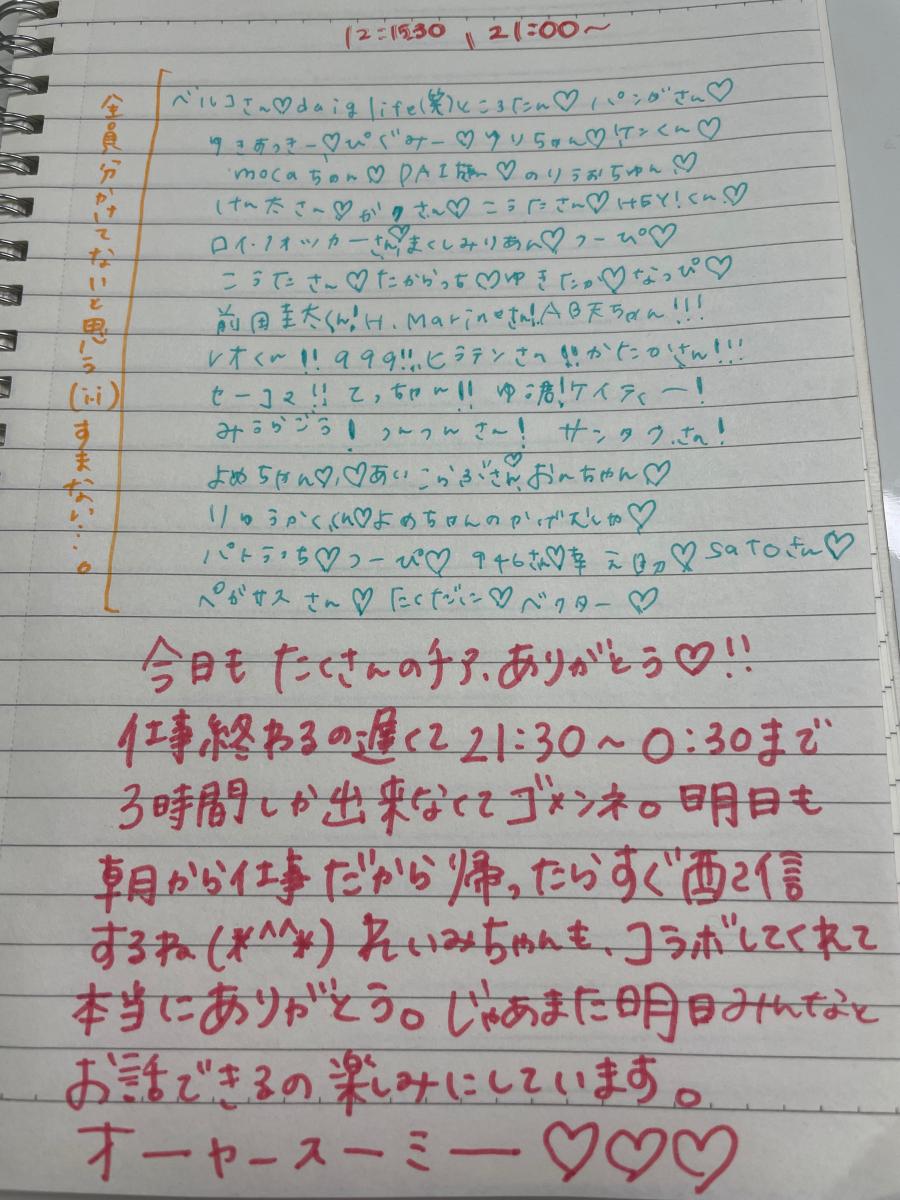 12:1530、21:00~
全員分かけてないと思う(;;)すまない…。
ベルコさん♡daig life(笑)ところたん♡ パンダさん♡
ゆきあっきー♡ぴぐみー♡ゆりちゃん♡けんくん♡
mocaちゃん♡DAI熊♡のりうおちゃん♡
けん太さん♡がっさん♡こうたさん♡HEY!くん♡
ロイ・フォッカーさん♡まくしみりあん♡つーぴ♡
こうたさん♡たからっち♡ゆきたか♡なっぴ♡
前田圭太くん!H.Marineさん!AB天ちゃん!!!
レオくん!!999!!ヒラテンさん!!かたおかさん!!!
セーコマ!!てっちゃん!!ゆ渚!ケイティー!
みうらごう!つんつんさん!サンタクさん!
よめちゃん♡♡あいこらぶさん♡おんちゃん♡
りゅうがくくん♡よめちゃんのかげむしゃ♡
パトラっち♡つーぴ♡946さん♡幸 SATOさん♡
ペガサスさん♡たくだに♡ベクター♡
今日もたくさんのチア、ありがとう♡!!
仕事終わるの遅くて21:30~0:30まで
3時間しか出来なくてゴメンネ。明日も
朝から仕事だから帰ったらすぐ配信
するね(*^^*)れいみちゃんも、コラボしてくれて
本当にありがとう。じゃあまた明日みんなと
お話できるの楽しみにしています。
オーヤースーミー♡♡♡